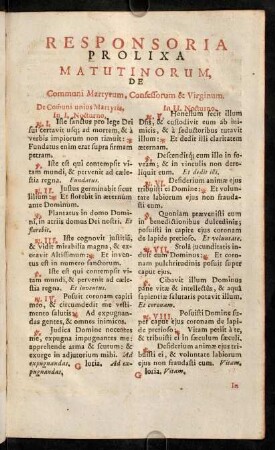 RESPONSORIA
PROLIXA
MATUTINORUM,
DE
Communi Martyrum, Confessorum & Virginum.
De Comuni unius Martyris,
In I. Nocturno.
℟. I. Iste sanctus pro lege Dei
sui certavit usq; ad mortem, & à
verbis impiorum non timuit:
Fundatus enim erat supra firmam
petram.
℣. Iste est qui contempsit vi-
tam mundi, & pervenit ad cæle-
stia regna. Fundatus.
℟. II. Justus germinabit sicut
lilium: Et florebit in æternum
ante Dominum.
℣. Plantatus in domo Domi-
ni, in atriis domus Dei nostri. Et
florebit.
℟. III. Iste cognovit justitiã,
& vidit mirabilia magna, & ex-
oravit Altissimum: Et inven-
tus est in numero sanctorum.
℣. Iste est qui contempsit vi-
tam mundi, & pervenit ad cæle-
stia regna. Et inventus.
℟. IV. Posuit coronam capiti
meo, & circumdedit me vesti-
mento salutis: Ad expugnan-
das gentes, & omnes inimicos.
℣. Judica Domine nocentes
me, expugna impugnantes me:
apprehende arma & scutum; &
exurge in adjutorium mihi. Ad
expugnandas. Gloria. Ad ex-
pugnandas.
In II. Nocturno.
Honestum fecit illum
Dñs, & custodivit eum ab ini-
micis, & à seductoribus tutavit
illum: Et dedit illi claritatem
æternam.
Descenditq; cum illo in fo-
veam; & in vinculis non dere-
liquit eum. Et dedit illi.
℟. VI. Desiderium animæ ejus
tribuisti ei Domine: Et volun-
tate labiorum ejus non frauda-
sti eum.
℣. Quoniam prævenisti eum
in benedictionibus dulcedinis;
posuisti in capite ejus coronam
de lapide pretioso. Et voluntate.
℟. VII. Stola jucunditatis in-
duit eum Dominus: Et co-
ronam pulchritudinis posuit super
caput ejus.
℣. Cibavit illum Dominus
pane vitæ & intellectûs, & aquâ
sapientiæ salutaris potavit illum.
Et coronam.
℟. VIII. Posuisti Domine su-
per caput ejus coronam de lapi-
de pretioso: Vitam petiit à te,
& tribuisti ei in sæculum sæculi.
℣. Desiderium animæ ejus tri-
buisti ei, & voluntate labiorum
ejus non fraudasti eum. Vitam.
Gloria. Vitam.
In